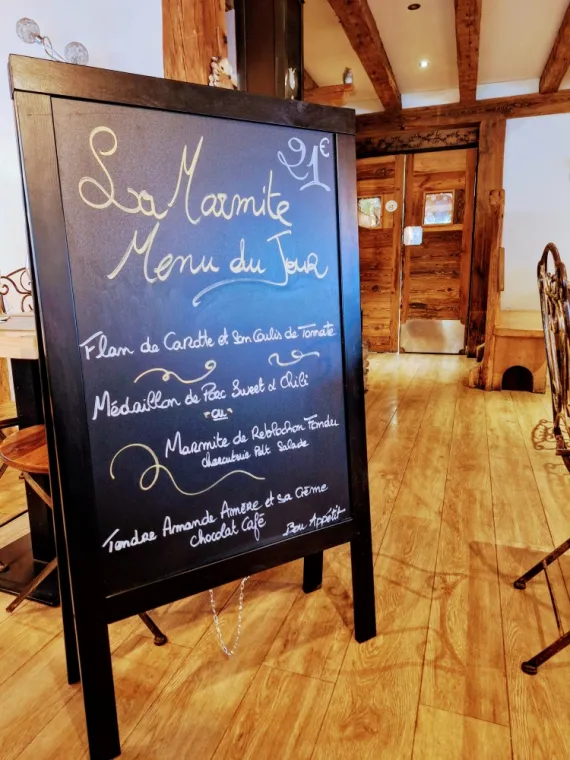 La Marmite 21€
Menu du Jour
Flan de Carotte et son Coulis de Tomate
Médaillon de Porc Sweet et Chili
ou
Marmite de Reblochon Fondu
charcuterie Petit Salade
Tendre Amande Amère et sa Crème
chocolat Café
Bon Appétit